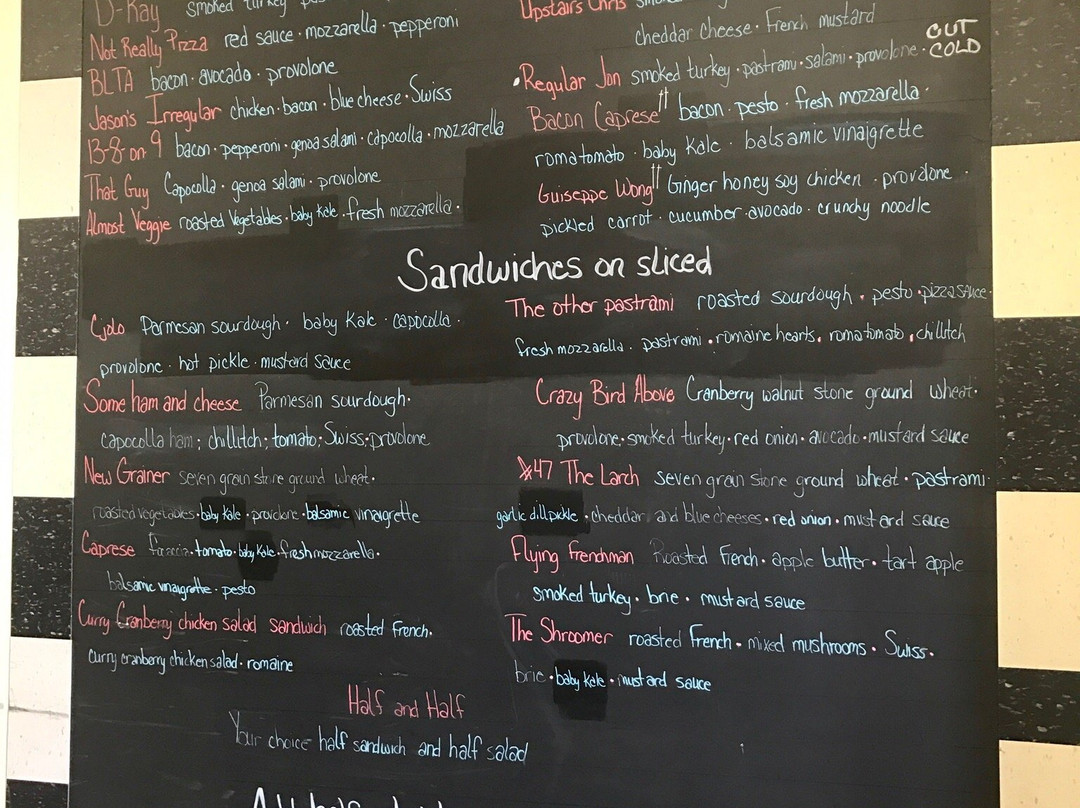 D-Ray smoked turkey
Not Really Pizza red sauce · mozzarella · pepperoni
BLTA bacon · avocado · provolone
Jason's Irregular chicken · bacon · blue cheese · Swiss
13-8-on 9 bacon · pepperoni · genoa salami · capocolla · mozzarella
That Guy Capocolla · genoa salami · provolone
Almost Veggie roasted vegetables · baby kale · fresh mozzarella ·
Upstairs Chris
cheddar cheese · French mustard
CUT COLD
· Regular Jon smoked turkey · pastrami · salami · provolone ·
Bacon Caprese†† bacon · pesto · fresh mozzarella ·
roma tomato · baby kale · balsamic vinaigrette
Guiseppe Wong†† Ginger honey soy chicken · provolone ·
pickled carrot · cucumber · avocado · crunchy noodle
Sandwiches on sliced
Parmesan sourdough · baby kale · capocolla ·
provolone · hot pickle · mustard sauce
Some ham and cheese Parmesan sourdough ·
capocolla ham; chillitch; tomato; Swiss; provolone
New Grainer seven grain stone ground wheat ·
roasted vegetables · baby kale · provolone · balsamic vinaigrette
Caprese focaccia · tomato · baby kale · fresh mozzarella ·
balsamic vinaigrette · pesto
Curry Cranberry chicken salad sandwich roasted French ·
curry cranberry chicken salad · romaine
The other pastrami roasted sourdough · pesto · pizza sauce ·
fresh mozzarella · pastrami · romaine hearts · roma tomato · chillitch
Crazy Bird Above Cranberry walnut stone ground wheat ·
provolone · smoked turkey · red onion · avocado · mustard sauce
#47 The Larch seven grain stone ground wheat · pastrami ·
garlic dill pickle · cheddar and blue cheeses · red onion · mustard sauce
Flying Frenchman Roasted French · apple butter · tart apple
smoked turkey · brie · mustard sauce
The Shroomer roasted French · mixed mushrooms · Swiss ·
brie · baby kale · mustard sauce
Half and Half
Your choice half sandwich and half salad